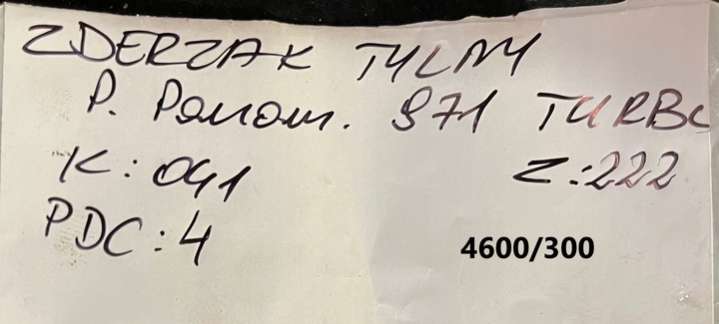 ZDERZAK TYLNY
P. Panam. 971 TURBO
K: 041 Z: 222
PDC: 4 4600/300